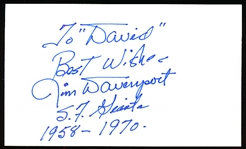 To "David"
Best Wishes
Jim Davenport
S.F. Giants
1958-1970.